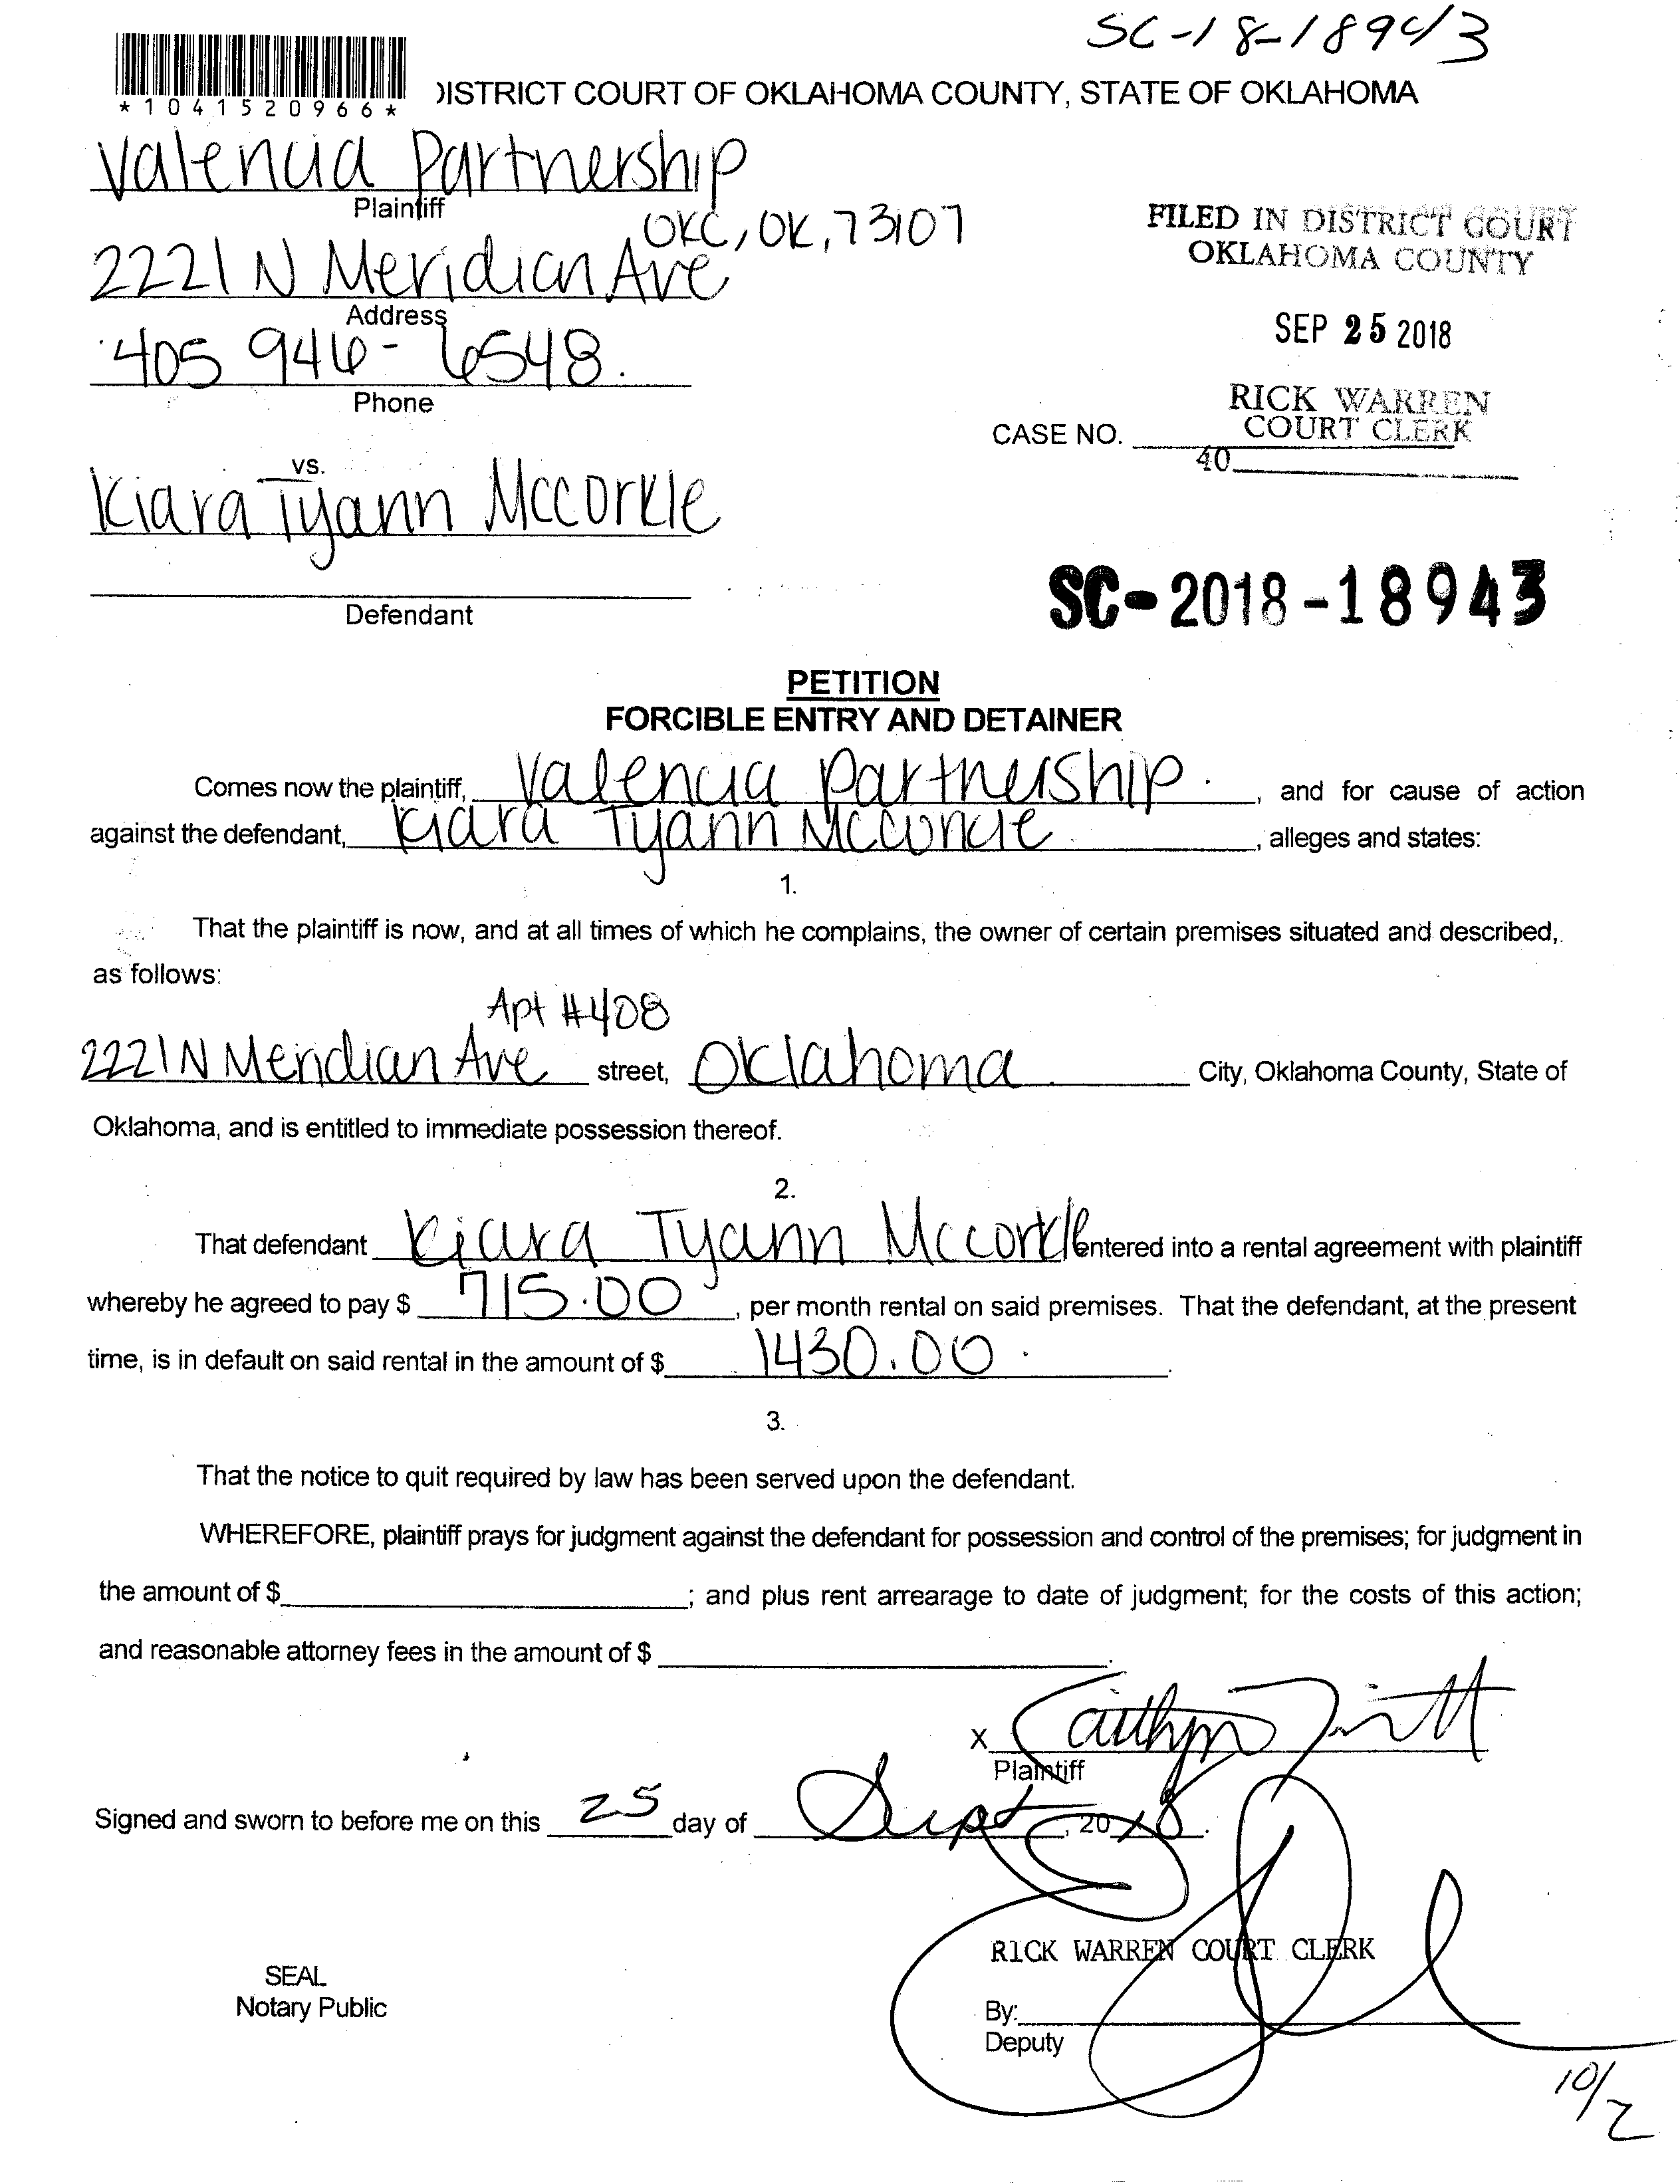 SC-18-18943
*1041520966*
DISTRICT COURT OF OKLAHOMA COUNTY, STATE OF OKLAHOMA
Valencia Partnership
Plaintiff
OKC, OK, 73107
2221 N Meridian Ave
Address
405 946-6548.
Phone
FILED IN DISTRICT COURT
OKLAHOMA COUNTY
SEP 25 2018
RICK WARREN
COURT CLERK
CASE NO.
40
vs.
Kiara Tyann Mccorkle
Defendant
SC-2018-18943
PETITION
FORCIBLE ENTRY AND DETAINER
Comes now the plaintiff, Valencia Partnership, and for cause of action
against the defendant, Kiara Tyann Mccorkle, alleges and states:
1.
That the plaintiff is now, and at all times of which he complains, the owner of certain premises situated and described,
as follows:
Apt #408
2221 N Meridian Ave street, Oklahoma City, Oklahoma County, State of
Oklahoma, and is entitled to immediate possession thereof.
2.
That defendant Kiara Tyann Mccorkle entered into a rental agreement with plaintiff
whereby he agreed to pay $ 715.00, per month rental on said premises. That the defendant, at the present
time, is in default on said rental in the amount of $ 1430.00.
3.
That the notice to quit required by law has been served upon the defendant.
WHEREFORE, plaintiff prays for judgment against the defendant for possession and control of the premises; for judgment in
the amount of $ ; and plus rent arrearage to date of judgment; for the costs of this action;
and reasonable attorney fees in the amount of $ .
X Caitlyn
Plaintiff
Signed and sworn to before me on this 25 day of Sept, 2018.
RICK WARREN COURT CLERK
SEAL
Notary Public
By:
Deputy
10/2